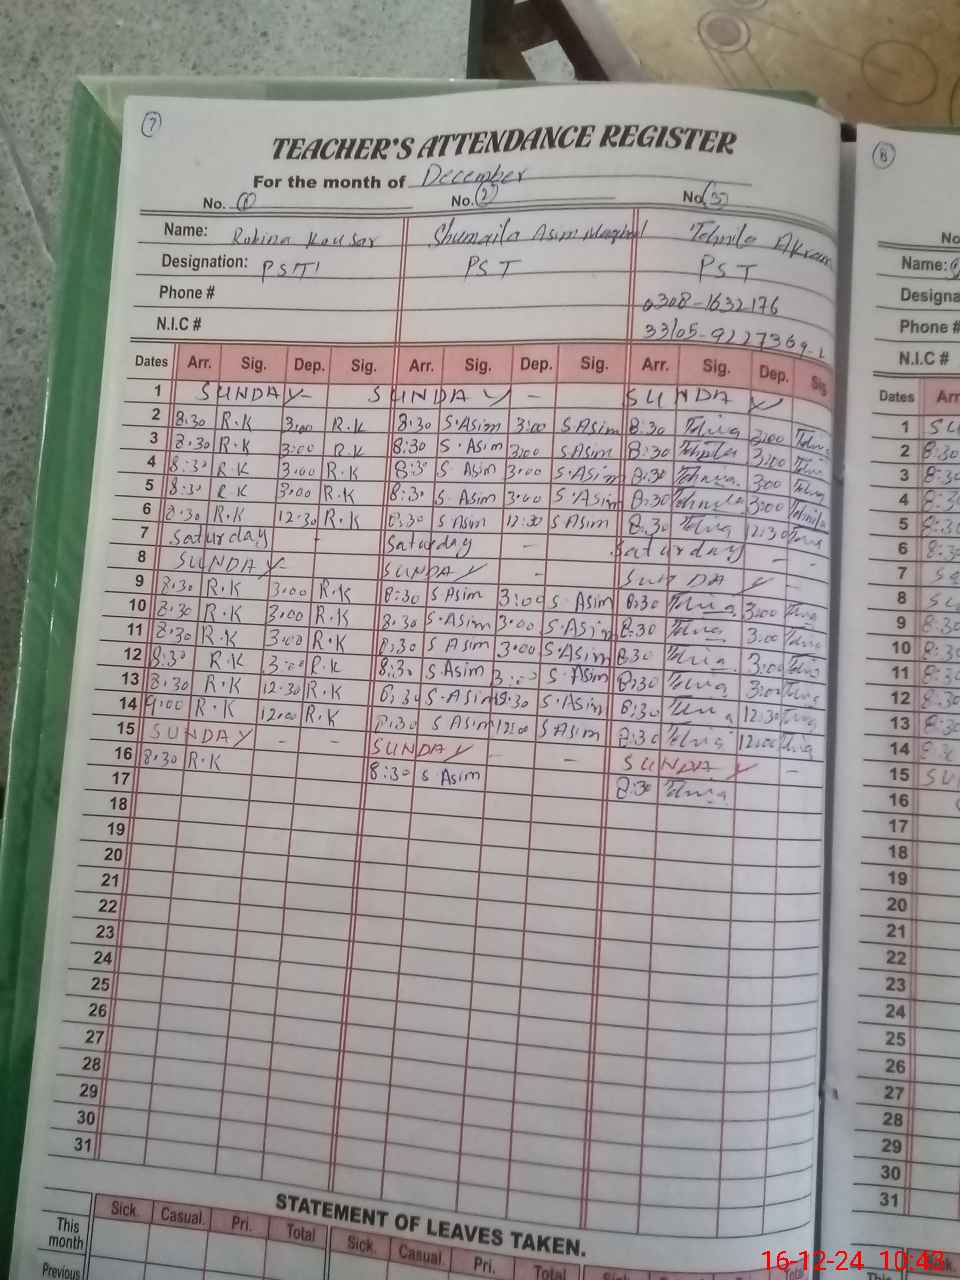 7
TEACHER'S ATTENDANCE REGISTER
For the month of December
No. 1 No. 2 No. 3
Name: Robina Kousar Shumaila Asim Maqbool Tehmila Akram
Designation: PST PST PST
Phone # 0308-1632176
N.I.C # 33105-9227369-2
Dates Arr. Sig. Dep. Sig. Arr. Sig. Dep. Sig. Arr. Sig. Dep. Sig
1 SUNDAY - SUNDAY - SUNDAY
2 8:30 R.K 3:00 R.K 8:30 S.Asim 3:00 S.Asim 8:30 3:00
3 8:30 R.K 3:00 R.K 8:30 S.Asim 3:00 S.Asim 8:30 3:00
4 8:30 R.K 3:00 R.K 8:30 S Asim 3:00 S.Asim 8:30 3:00
5 8:30 R.K 3:00 R.K 8:30 S Asim 3:00 S.Asim 8:30 3:00
6 8:30 R.K 12:30 R.K 8:30 S Asim 12:30 S Asim 8:30 12:30
7 Saturday - Saturday - Saturday - -
8 SUNDAY SUNDAY - SUNDAY -
9 8:30 R.K 3:00 R.K 8:30 S Asim 3:00 S.Asim 8:30 3:00
10 8:30 R.K 3:00 R.K 8:30 S.Asim 3:00 S.Asim 8:30 3:00
11 8:30 R.K 3:00 R.K 8:30 S Asim 3:00 S.Asim 8:30 3:00
12 8:30 R.K 3:00 R.K 8:30 S Asim 3:00 S.Asim 8:30 3:00
13 8:30 R.K 12:30 R.K 8:30 S.Asim 12:30 S.Asim 8:30 12:30
14 9:00 R.K 12:00 R.K 8:30 S Asim 12:00 S Asim 8:30 12:00
15 SUNDAY - - SUNDAY - - SUNDAY -
16 8:30 R.K 8:30 S.Asim 8:30
17
18
19
20
21
22
23
24
25
26
27
28
29
30
31
STATEMENT OF LEAVES TAKEN.
Sick. Casual. Pri. Total Sick. Casual. Pri. Total Sick. Casual.
This month
Previous
8
No
Name:
Designa
Phone #
N.I.C #
Dates Arr
1 SU
2 8:30
3 8:30
4 8:30
5 8:30
6 8:30
7 Sa
8 SU
9 8:30
10 8:30
11 8:30
12 8:30
13 8:30
14
15 SU
16
17
18
19
20
21
22
23
24
25
26
27
28
29
30
31
16-12-24 10:43